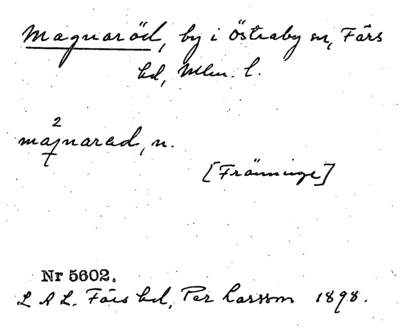 Magnaröd, by i Östraby sn, Färs
hd, Mlm. l.
2
majnarad, n.
[Fränninge]
Nr 5602.
L A L. Färs hd, Per Larsson 1898.